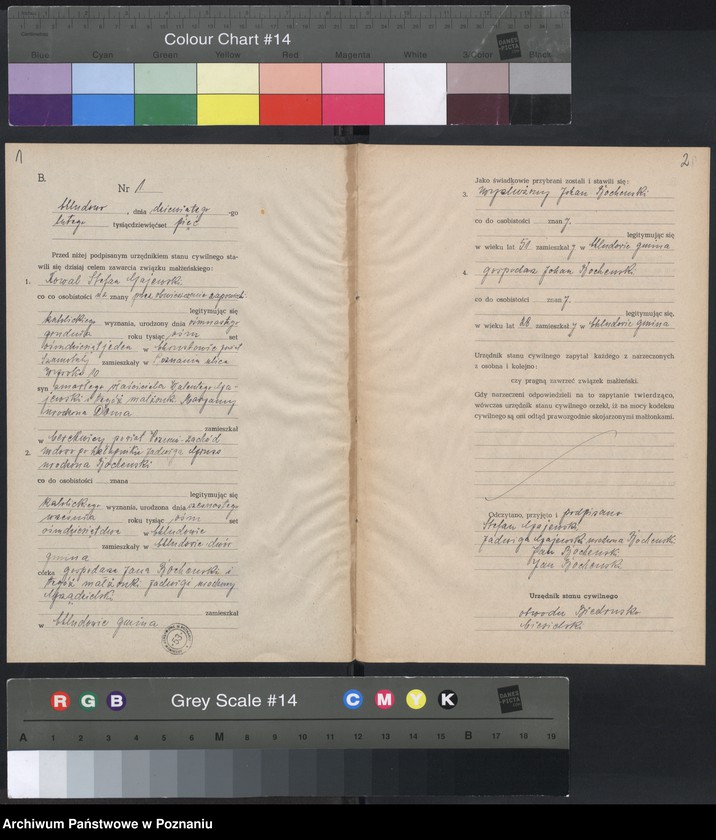 Colour Chart #14
Blue Cyan Green Yellow Red Magenta White 3/Color Black
DANES
PICTA
1
B.
Nr 1
Chludowo, dnia dziewiątego -go
lutego tysiącdziewięćset pięć
Przed niżej podpisanym urzędnikiem stanu cywilnego sta-
wili się dzisiaj celem zawarcia związku małżeńskiego:
1. Kowal Stefan Gajewski
co do osobistości znany przez
legitymując się
katolickiego wyznania, urodzony dnia ósmnastego
grudnia roku tysiąc ośm set
ośmdziesiąt jeden w powiat
Szamotuły zamieszkały w Poznaniu ulica
10
syn zmarłego Walentego Ga-
jewskiego i tegoż małżonki Maryanny
urodzona
zamieszkał
w powiat zachód
2. Jadwiga Agnes
urodzona Bochenski
co do osobistości znana
legitymując się
katolickiego wyznania, urodzona dnia szesnastego
września roku tysiąc ośm set
ośmdziesiąt dwa w Chludowie
zamieszkały w Chludowie dwór
gmina
córka gospodarza Jana Bochenski i
tegoż małżonki Jadwigi urodzony
zamieszkał
w Chludowie gmina
2
Jako świadkowie przybrani zostali i stawili się:
3. Wysłużony Johan Bochenski
co do osobistości znany.
legitymując się
w wieku lat 51 zamieszkał y w Chludowie gmina
4. gospodarz Johan Bochenski
co do osobistości znany.
legitymując się,
w wieku lat 28 zamieszkał y w Chludowie gmina
Urzędnik stanu cywilnego zapytał każdego z narzeczonych
z osobna i kolejno:
czy pragną zawrzeć związek małżeński.
Gdy narzeczeni odpowiedzieli na to zapytanie twierdząco,
wówczas urzędnik stanu cywilnego orzekł, iż na mocy kodeksu
cywilnego są oni odtąd prawozgodnie skojarzonymi małżonkami.
Odczytano, przyjęto i podpisano
Stefan Gajewski
Jadwiga Gajewski urodzona Bochenski
Jan Bochenski
Jan Bochenski
Urzędnik stanu cywilnego
obwodu Biedrusko
R G B Grey Scale #14 C M Y K
DANES
PICTA
A 1 2 3 4 5 6 M 8 9 10 11 12 13 14 15 B 17 18 19
Archiwum Państwowe w Poznaniu